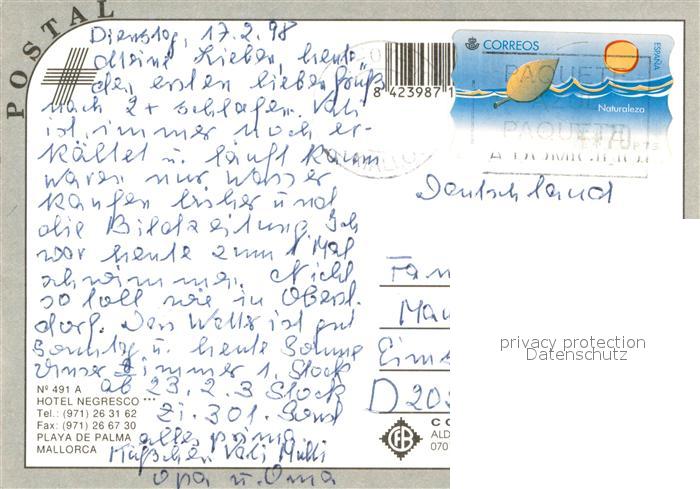 POSTAL
Dienstag, 17.2.98
Meine Lieben, heute
den ersten lieben Gruß
nach 2 + schlagen. Vati
ist immer noch er-
kältet u. läuft kaum
waren nur Wasser
kaufen bisher und
die Bildzeitung. Ich
war heute zum 1 Mal
schwimmen. Nicht
so toll wie in Oberst.
dorf. Das Wetter ist gut
Sonntag u. heute Sonne
Unser Zimmer 1. Stock
ab 23.2. 3 Stock
Zi. 301. Sonst
alles prima.
Küßchen Vati Mutti
Opa u. Oma
Nº 491 A
HOTEL NEGRESCO ***
Tel.: (971) 26 31 62
Fax: (971) 26 67 30
PLAYA DE PALMA
MALLORCA
8 423987 1
CORREOS
ESPAÑA
Naturaleza
PAQUET
PAQUET
70 PTS
Deutschland
Fam
Mau
Eims
D 203
CO
ALD
070
privacy protection
Datenschutz